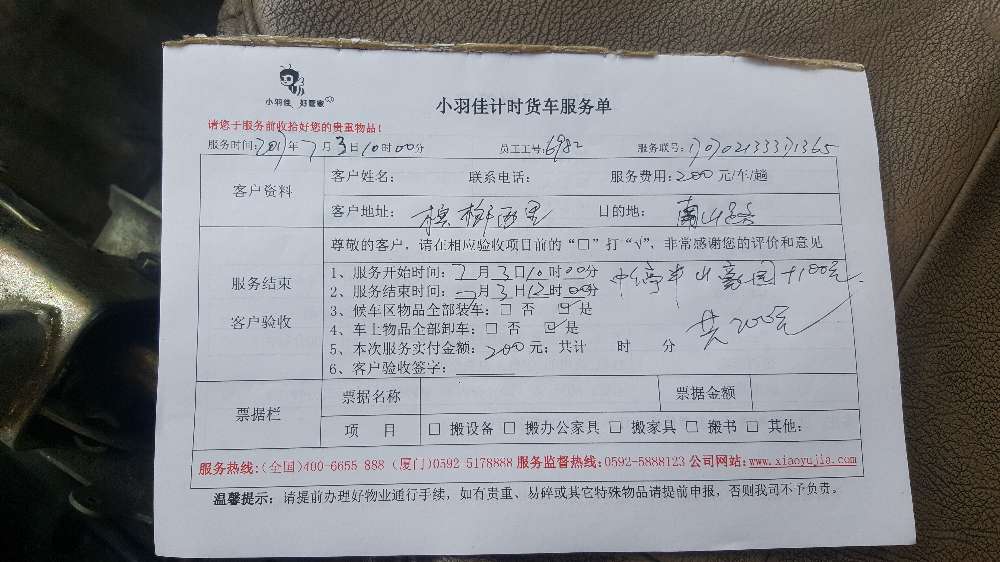 小羽佳 好管家
小羽佳计时货车服务单
请您于服务前收拾好您的贵重物品!
服务时间:2017年7月3日10时00分 员工工号:6982 服务联号:
客户资料
客户姓名: 联系电话: 服务费用:200元/车/趟
客户地址: 槟榔西里 目的地: 南山路
尊敬的客户,请在相应验收项目前的“□”打“√”,非常感谢您的评价和意见
服务结束
客户验收
1、服务开始时间:7月3日10时00分
2、服务结束时间:7月3日12时00分
3、候车区物品全部装车:□ 否 ☑ 是
4、车上物品全部卸车:□ 否 ☑ 是
5、本次服务实付金额:200元;共计 时 分
6、客户验收签字:
中停半山豪园+100元
共200元
票据栏
票据名称 票据金额
项 目 □ 搬设备 □ 搬办公家具 □ 搬家具 □ 搬书 □ 其他:
服务热线:(全国)400-6655 888 (厦门)0592 5178888 服务监督热线:0592-5888123 公司网站:www.xiaoyujia.com
温馨提示:请提前办理好物业通行手续,如有贵重、易碎或其它特殊物品请提前申报,否则我司不予负责。